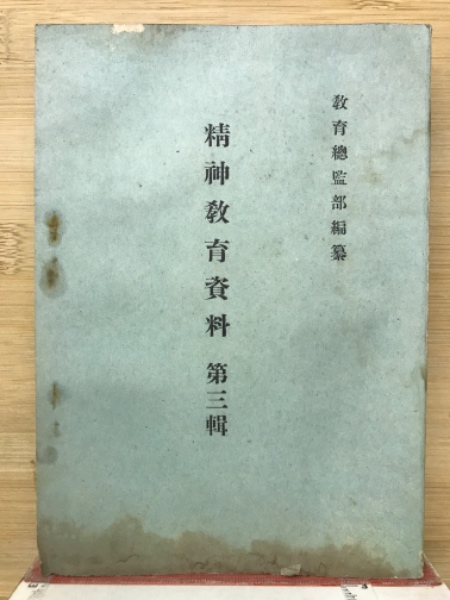 教育總監部編纂
精神教育資料 第三輯